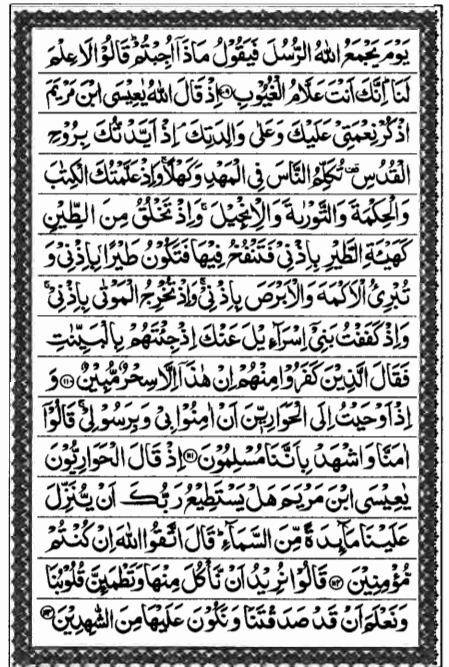 يَوْمَ يَجْمَعُ اللّٰهُ الرُّسُلَ فَيَقُوْلُ مَاذَاۤ اُجِبْتُمْؕ قَالُوْا لَا عِلْمَ
لَنَاؕ اِنَّكَ اَنْتَ عَلَّامُ الْغُيُوْبِ ۝۱۰۹ اِذْ قَالَ اللّٰهُ يٰعِيْسَى ابْنَ مَرْيَمَ
اذْكُرْ نِعْمَتِيْ عَلَيْكَ وَعَلٰى وَالِدَتِكَ ۘ اِذْ اَيَّدْتُّكَ بِرُوْحِ
الْقُدُسِ ۟ تُكَلِّمُ النَّاسَ فِي الْمَهْدِ وَكَهْلًا ۚ وَاِذْ عَلَّمْتُكَ الْكِتٰبَ
وَالْحِكْمَةَ وَالتَّوْرٰىةَ وَالْاِنْجِيْلَ ۚ وَاِذْ تَخْلُقُ مِنَ الطِّيْنِ
كَهَيْـَٔةِ الطَّيْرِ بِاِذْنِيْ فَتَنْفُخُ فِيْهَا فَتَكُوْنُ طَيْرًۢا بِاِذْنِيْ وَ
تُبْرِئُ الْاَكْمَهَ وَالْاَبْرَصَ بِاِذْنِيْ ۚ وَاِذْ تُخْرِجُ الْمَوْتٰى بِاِذْنِيْ ۚ
وَاِذْ كَفَفْتُ بَنِيْۤ اِسْرَآءِيْلَ عَنْكَ اِذْ جِئْتَهُمْ بِالْبَيِّنٰتِ
فَقَالَ الَّذِيْنَ كَفَرُوْا مِنْهُمْ اِنْ هٰذَاۤ اِلَّا سِحْرٌ مُّبِيْنٌ ۝۱۱۰ وَ
اِذْ اَوْحَيْتُ اِلَى الْحَوَارِيّٖنَ اَنْ اٰمِنُوْا بِيْ وَبِرَسُوْلِيْ ۚ قَالُوْۤا
اٰمَنَّا وَاشْهَدْ بِاَنَّنَا مُسْلِمُوْنَ ۝۱۱۱ اِذْ قَالَ الْحَوَارِيُّوْنَ
يٰعِيْسَى ابْنَ مَرْيَمَ هَلْ يَسْتَطِيْعُ رَبُّكَ اَنْ يُّنَزِّلَ
عَلَيْنَا مَآئِدَةً مِّنَ السَّمَآءِؕ قَالَ اتَّقُوا اللّٰهَ اِنْ كُنْتُمْ
مُّؤْمِنِيْنَ ۝۱۱۲ قَالُوْا نُرِيْدُ اَنْ نَّاْكُلَ مِنْهَا وَتَطْمَئِنَّ قُلُوْبُنَا
وَنَعْلَمَ اَنْ قَدْ صَدَقْتَنَا وَنَكُوْنَ عَلَيْهَا مِنَ الشّٰهِدِيْنَ ۝۱۱۳